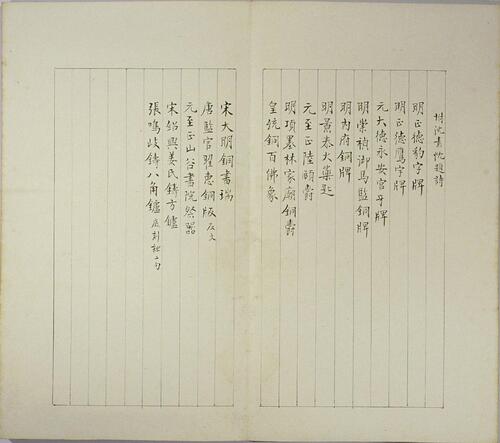 附沈青沈題詩
明正德豹字牌
明正德鷹字牌
元大德永安官牙牌
明崇禎御馬監銅牌
明內府銅牌
明景泰火藥匙
元至正陸頤壽
明項墨林家廟銅壽
皇統銅百佛象
宋大明銅書瑞
唐監官瞿惠銅版 反文
元至正山谷書院祭器
宋紹興姜氏鑄方鑪
張鳴岐鑄八角鑪